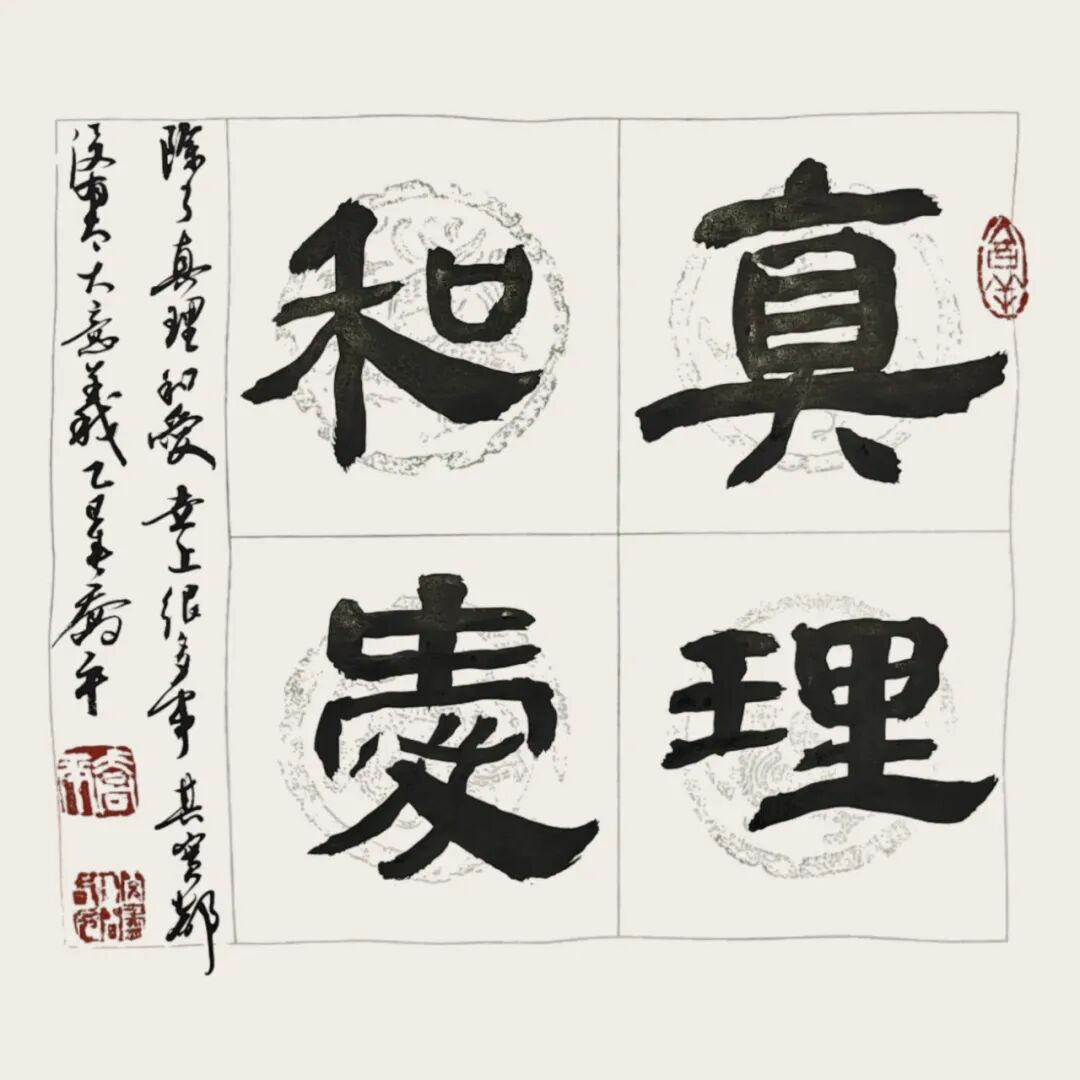 真理
和愛
除了真理和愛世上很多事其實都
沒有太大意義乙巳春